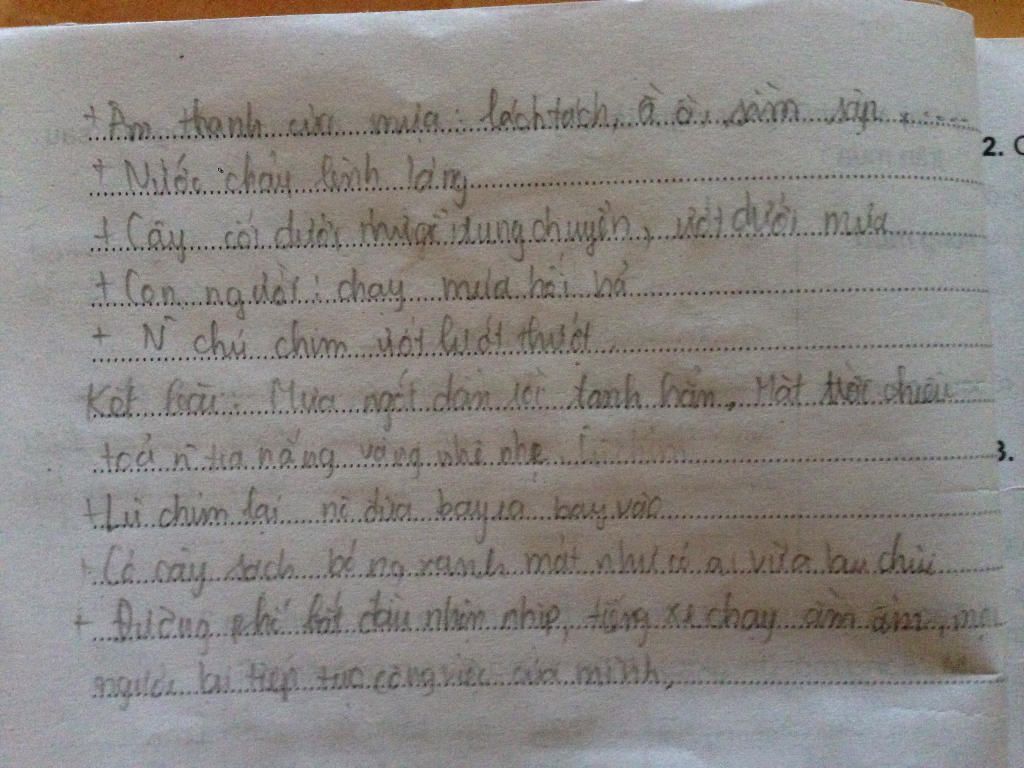 + Âm thanh của mưa: lách tách, ồ ồ, sầm sập,.....
2.
+ Nước chảy lênh láng
+ Cây cối dưới mưa rung chuyển, ướt dưới mưa
+ Con người: chạy mưa hối hả
+ N~ chú chim ướt lướt thướt
Kết bài: Mưa ngớt dần rồi tạnh hẳn, Mặt trời chiếu
toả n~ tia nắng vàng nhè nhẹ.
3.
+ Lũ chim lại nô đùa bay ra bay vào
+ Cỏ cây sạch bóng xanh mát như có ai vừa lau chùi
+ Đường phố bắt đầu nhộn nhịp, tiếng xe chạy ầm ầm, mọi
người lại tiếp tục công việc của mình,